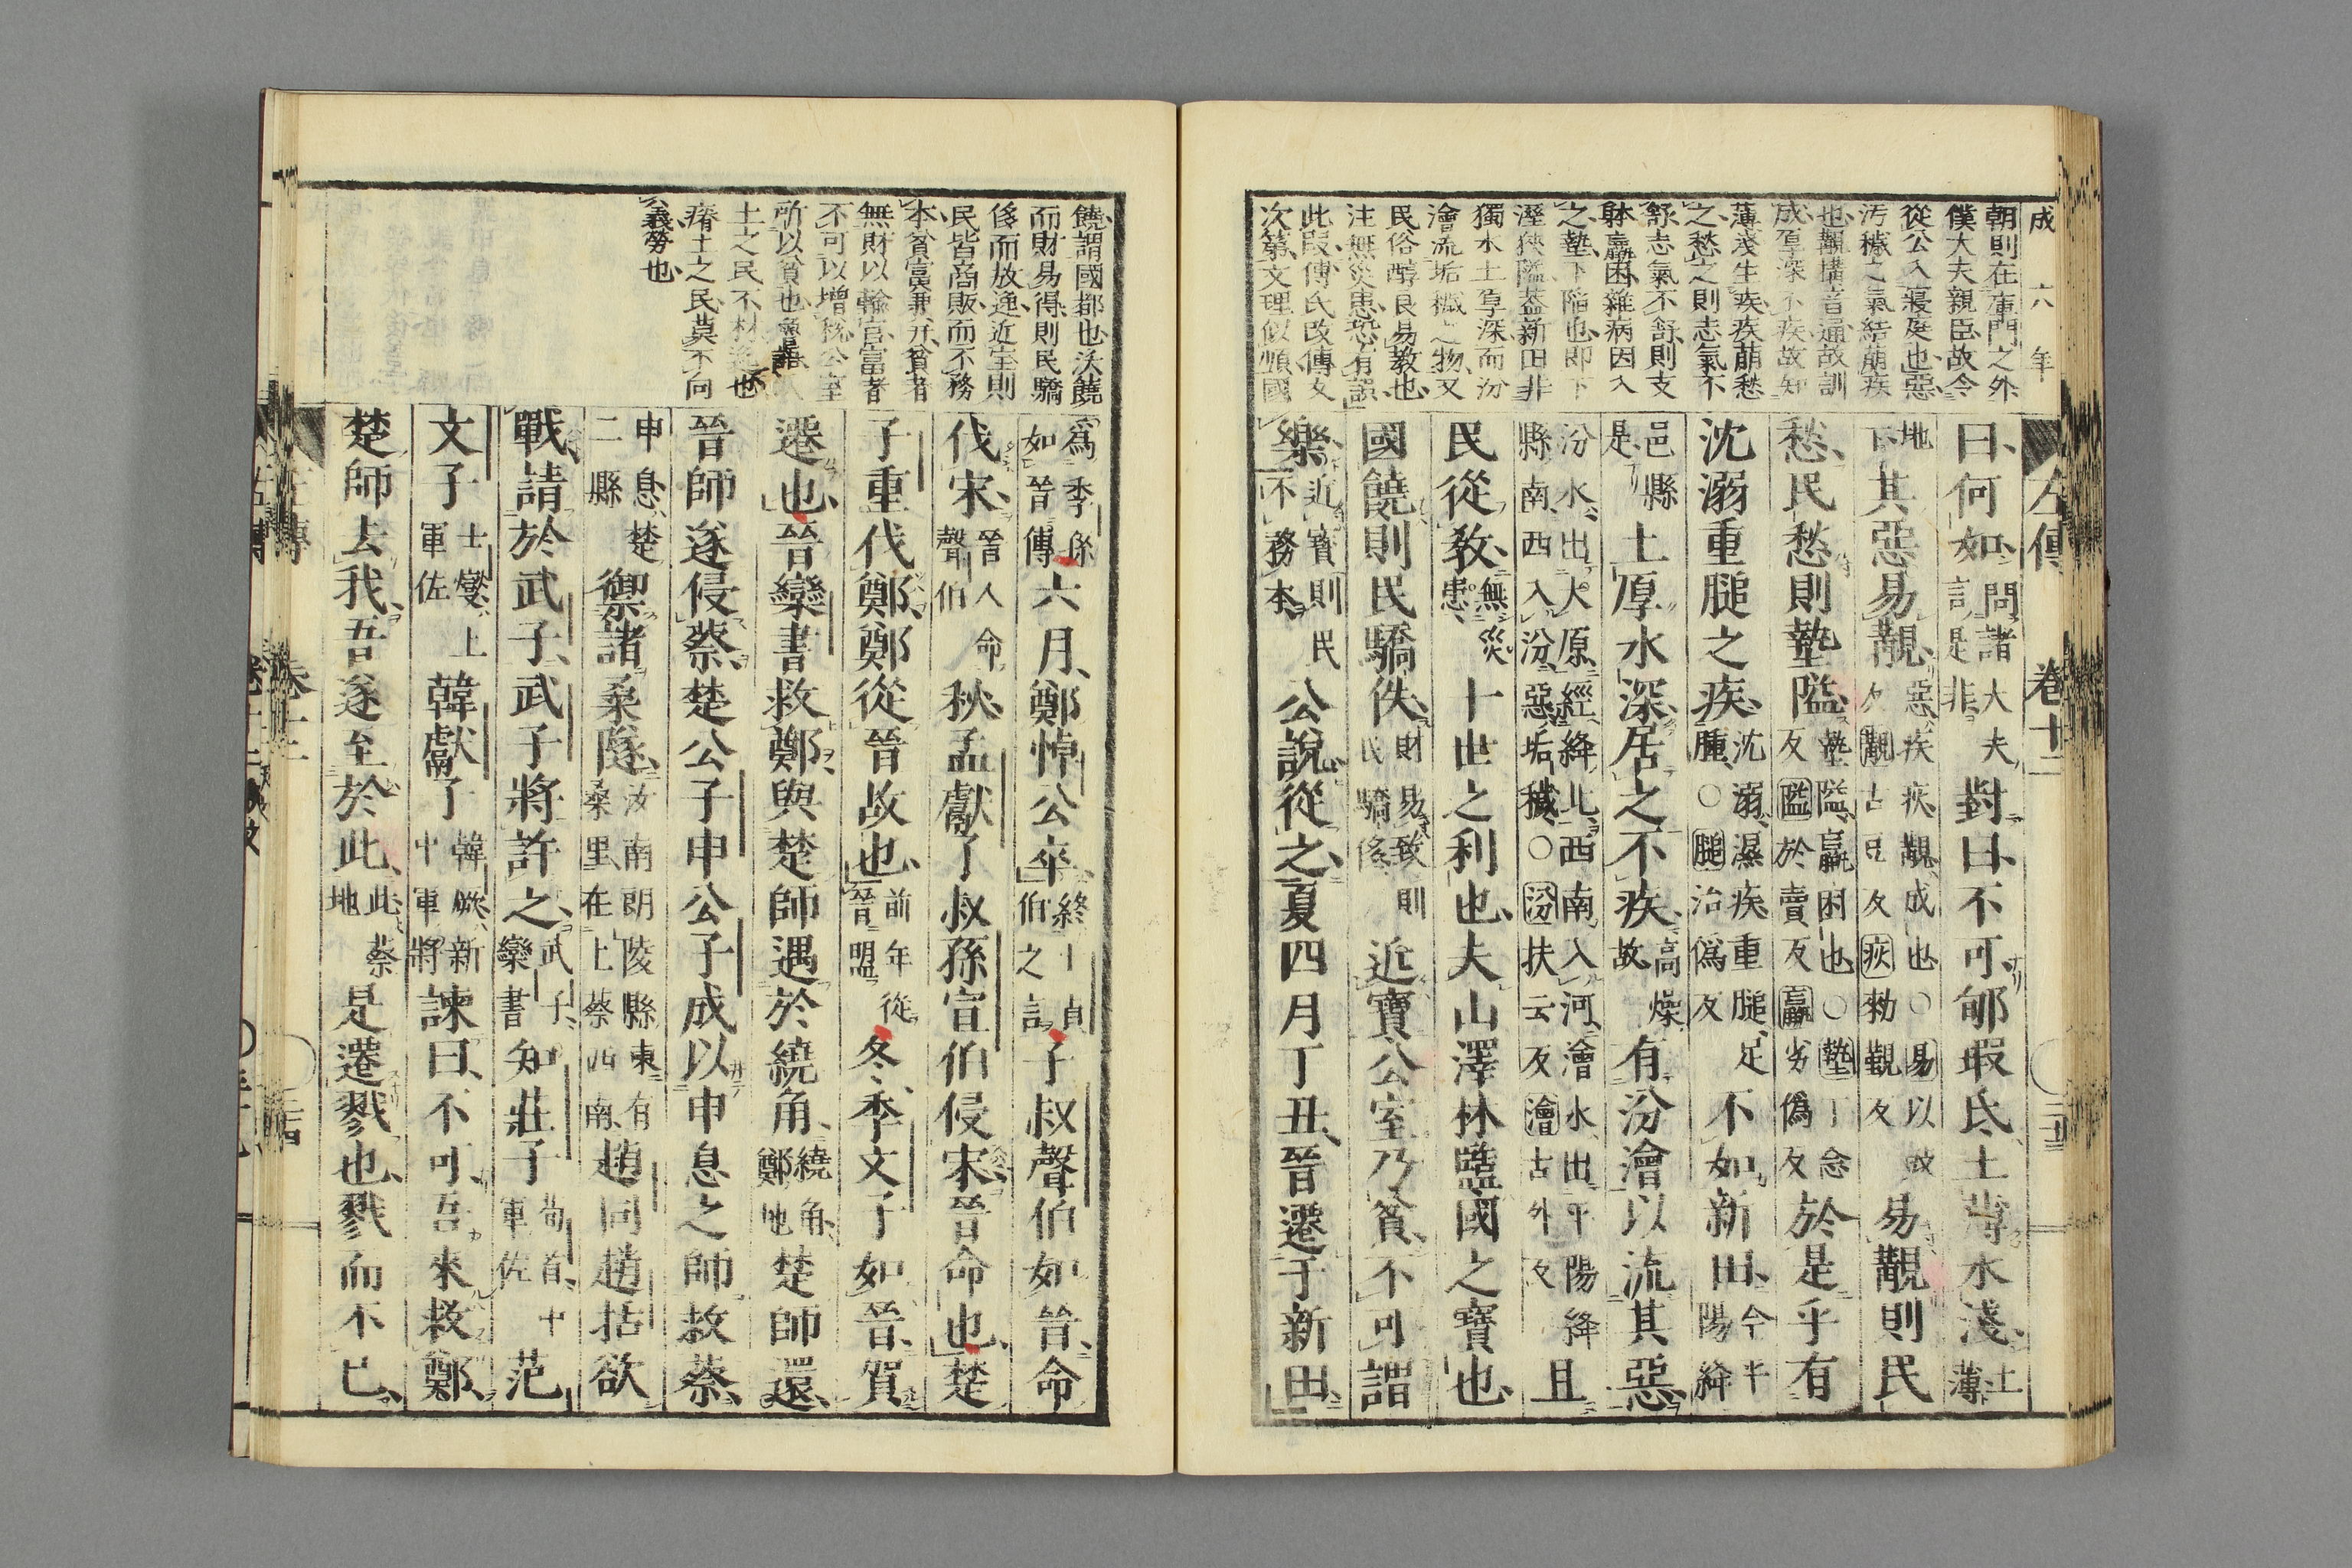 成六年
朝則在庫門之外
僕大夫親臣故令
從公入寢庭也惡
汚穢之氣結蔀疾
也覯構音通故訓
成厚深不疾故知
薄淺生疾疾蔀愁
之愁之則志氣不
舒志氣不舒則支
躰羸困雜病因入
之墊下陷也即下
溼狹隘蓋新田非
獨水土厚深而汾
澮流垢穢之物又
民俗醇良易教也
注無災患恐有誤
此段傳氏改傳文
次第文理似順國
左傳 卷十二
曰何如問諸大夫言是非對曰不可郇瑕氏土薄水淺土薄
地下其惡易覯惡疾疢覯成也○易以豉反覯古豆反疢勑覲反易覯則民
愁民愁則墊隘墊隘羸困也○墊丁念反隘於賣反羸劣僞反於是乎有
沈溺重膇之疾沈溺濕疾重膇足腫○膇治僞反不如新田今平陽絳
邑縣是土厚水深居之不疾高燥故有汾澮以流其惡
汾水出大原經絳北西南入河澮水出平陽絳縣南西入汾惡垢穢○汾扶云反澮古外反且
民從教無災患十世之利也夫山澤林盬國之寶也
國饒則民驕佚財易致則民驕侈近寶公室乃貧不可謂
樂近寶則民不務本公說從之夏四月丁丑晉遷于新田
饒謂國都也沃饒
而財易得則民驕
侈而放逸近室則
民皆商販而不務
本貧富兼幷貧者
無財以輸官富者
不可以增稅公室
所以貧也魯語
土之民不材逸也
瘠土之民莫不向
義勞也
爲季孫如晉傳六月鄭悼公卒終士貞伯之言子叔聲伯如晉命
伐宋晉人命聲伯秋孟獻子叔孫宣伯侵宋晉命也楚
子重伐鄭鄭從晉故也前年從晉盟冬季文子如晉賀
遷也晉欒書救鄭與楚師遇於繞角繞角鄭地楚師還
晉師遂侵蔡楚公子申公子成以申息之師救蔡
申息楚二縣禦諸桑隧汝南朗陵縣東有桑里在上蔡西南趙同趙括欲
戰請於武子武子將許之武子欒書知莊子荀首中軍佐范
文子士燮上軍佐韓獻子韓厥新中軍將諫曰不可吾來救鄭
楚師去我吾遂至於此此蔡地是遷戮也戮而不已
左傳 卷十二